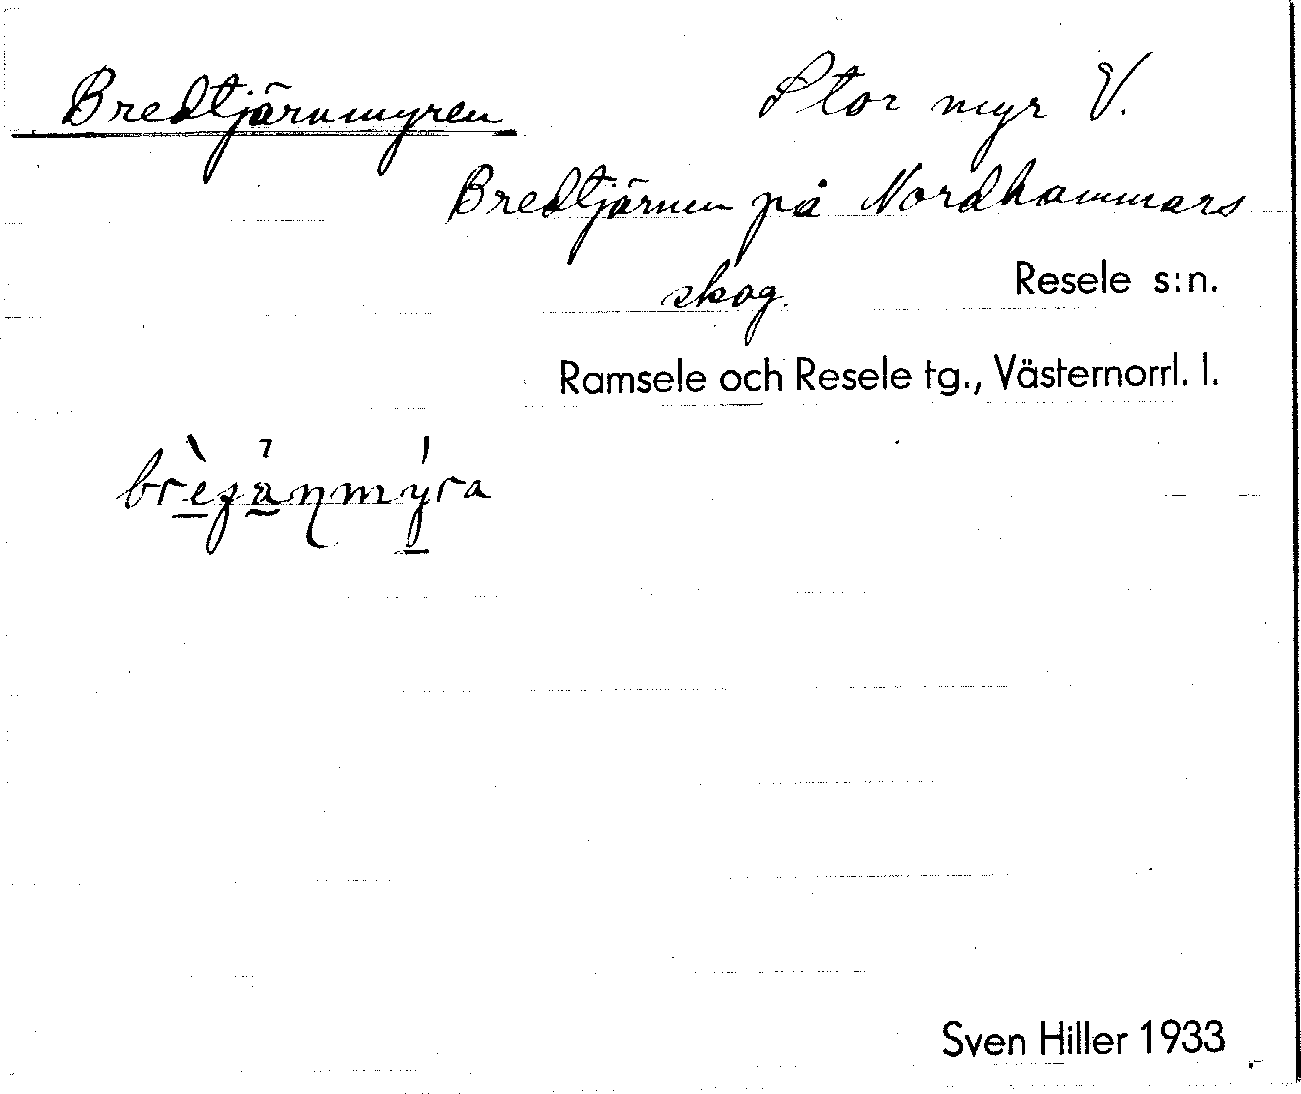 Bredtjärnmyren Stor myr V.
Bredtjärnen på Nordhammars
skog. Resele s:n.
Ramsele och Resele tg., Västernorrl. l.
Sven Hiller 1933